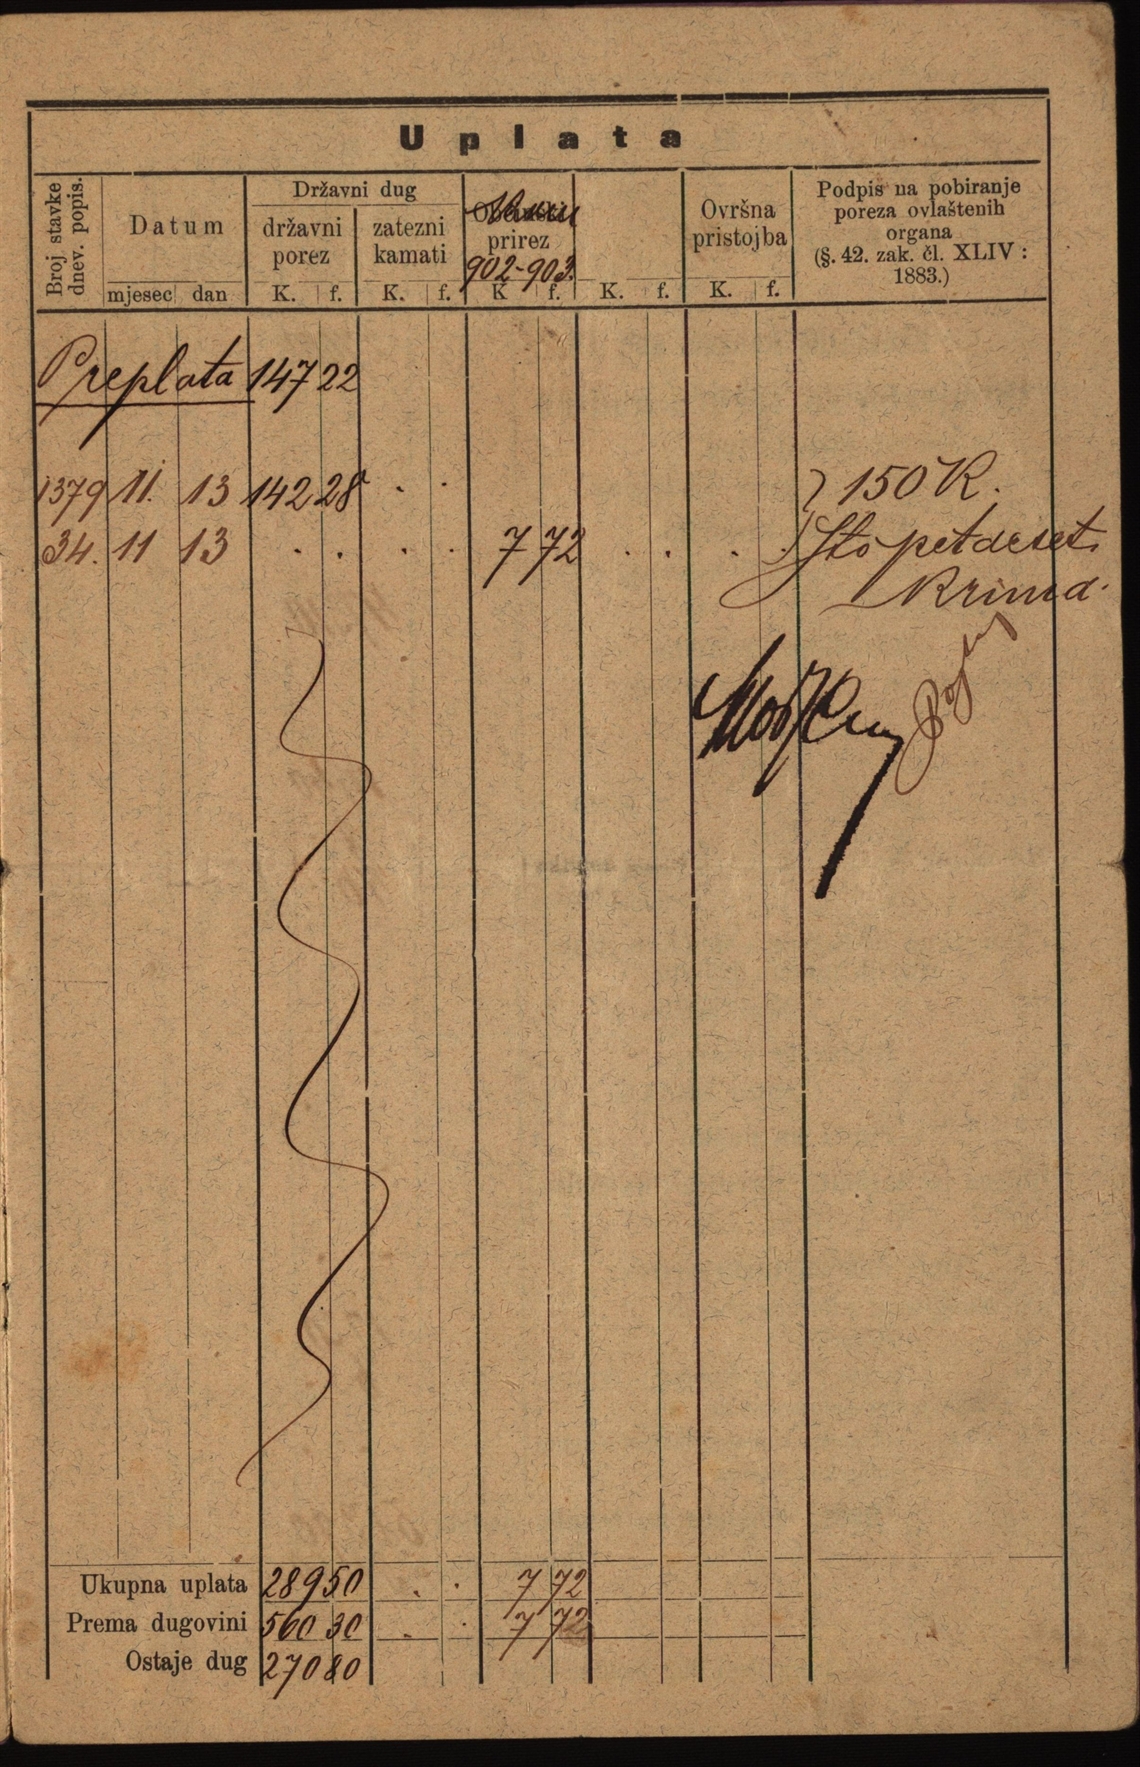 Uplata
Broj stavke dnev. popis.
Datum
mjesec dan
Državni dug
državni porez
K. f.
zatezni kamati
K. f.
prirez
902-903.
K f.
K. f.
Ovršna pristojba
K. f.
Podpis na pobiranje
poreza ovlaštenih
organa
(§. 42. zak. čl. XLIV :
1883.)
Preplata 147 22
1379 11. 13 142 28 . . } 150 K.
34. 11 13 . . . . 7 72 . . . . Sto petdeset
Kruna.
Ukupna uplata 289 50 . . 7 72
Prema dugovini 560 30 . . 7 72
Ostaje dug 270 80